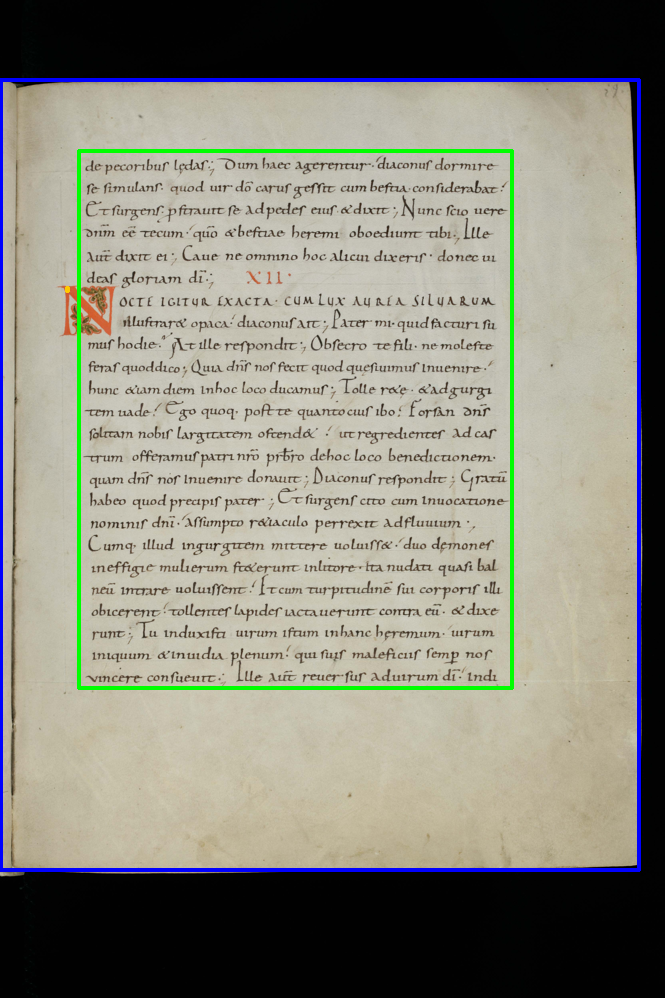 de pecoribus lędas:, Dum haec agerentur· diaconus dormire
se simulans· quod uir dō carus gessit cum bestia considerabat·
Et surgens· pstrauit se ad pedes eius & dixit:, Nunc scio uere
dnm̄ eē tecum· quō & bestiae heremi oboediunt tibi:, Ille
aut̄ dixit ei:, Caue ne omnino hoc alicui dixeris· donec ui
deas gloriam dī:, XII·
NOCTE IGITUR EXACTA· CUM LUX AUREA SILUARUM
illustrar& opaca· diaconus ait:, Pater mi· quid facturi su
mus hodie· At ille respondit:, Obsecro te fili· ne moleste
feras quod dico:, Quia dn̄s nos fecit quod quesiuimus inuenire·
hunc &iam diem in hoc loco ducamus:, Tolle r&e· & ad gurgi
tem uade· Ego quoq· post te quantocius ibo· Forsan dn̄s
solitam nobis largitatem ostend& · ut regredientes ad cas
trum offeramus patri nr̄o prb̄ro de hoc loco benedictionem·
quam dn̄s nos inuenire donauit:, Diaconus respondit:, Gratū
habeo quod precipis pater:, Et surgens cito cum inuocatione
nominis dn̄i· assumpto r&iaculo perrexit ad fluuium:,
Cumq· illud in gurgitem mittere uoluiss&· duo demones
in effigie mulierum st&erunt in litore· ita nudati quasi bal
neū intrare uoluissent· Et cum turpitudinē sui corporis illi
obicerent· tollentes lapides iactauerunt contra eū· & dixe
runt:, Tu induxisti uirum istum in hanc heremum· uirum
iniquum & inuidia plenum· qui suis maleficiis semp nos
vincere consueuit:, Ille aut̄ reuersus ad uirum dī· indi